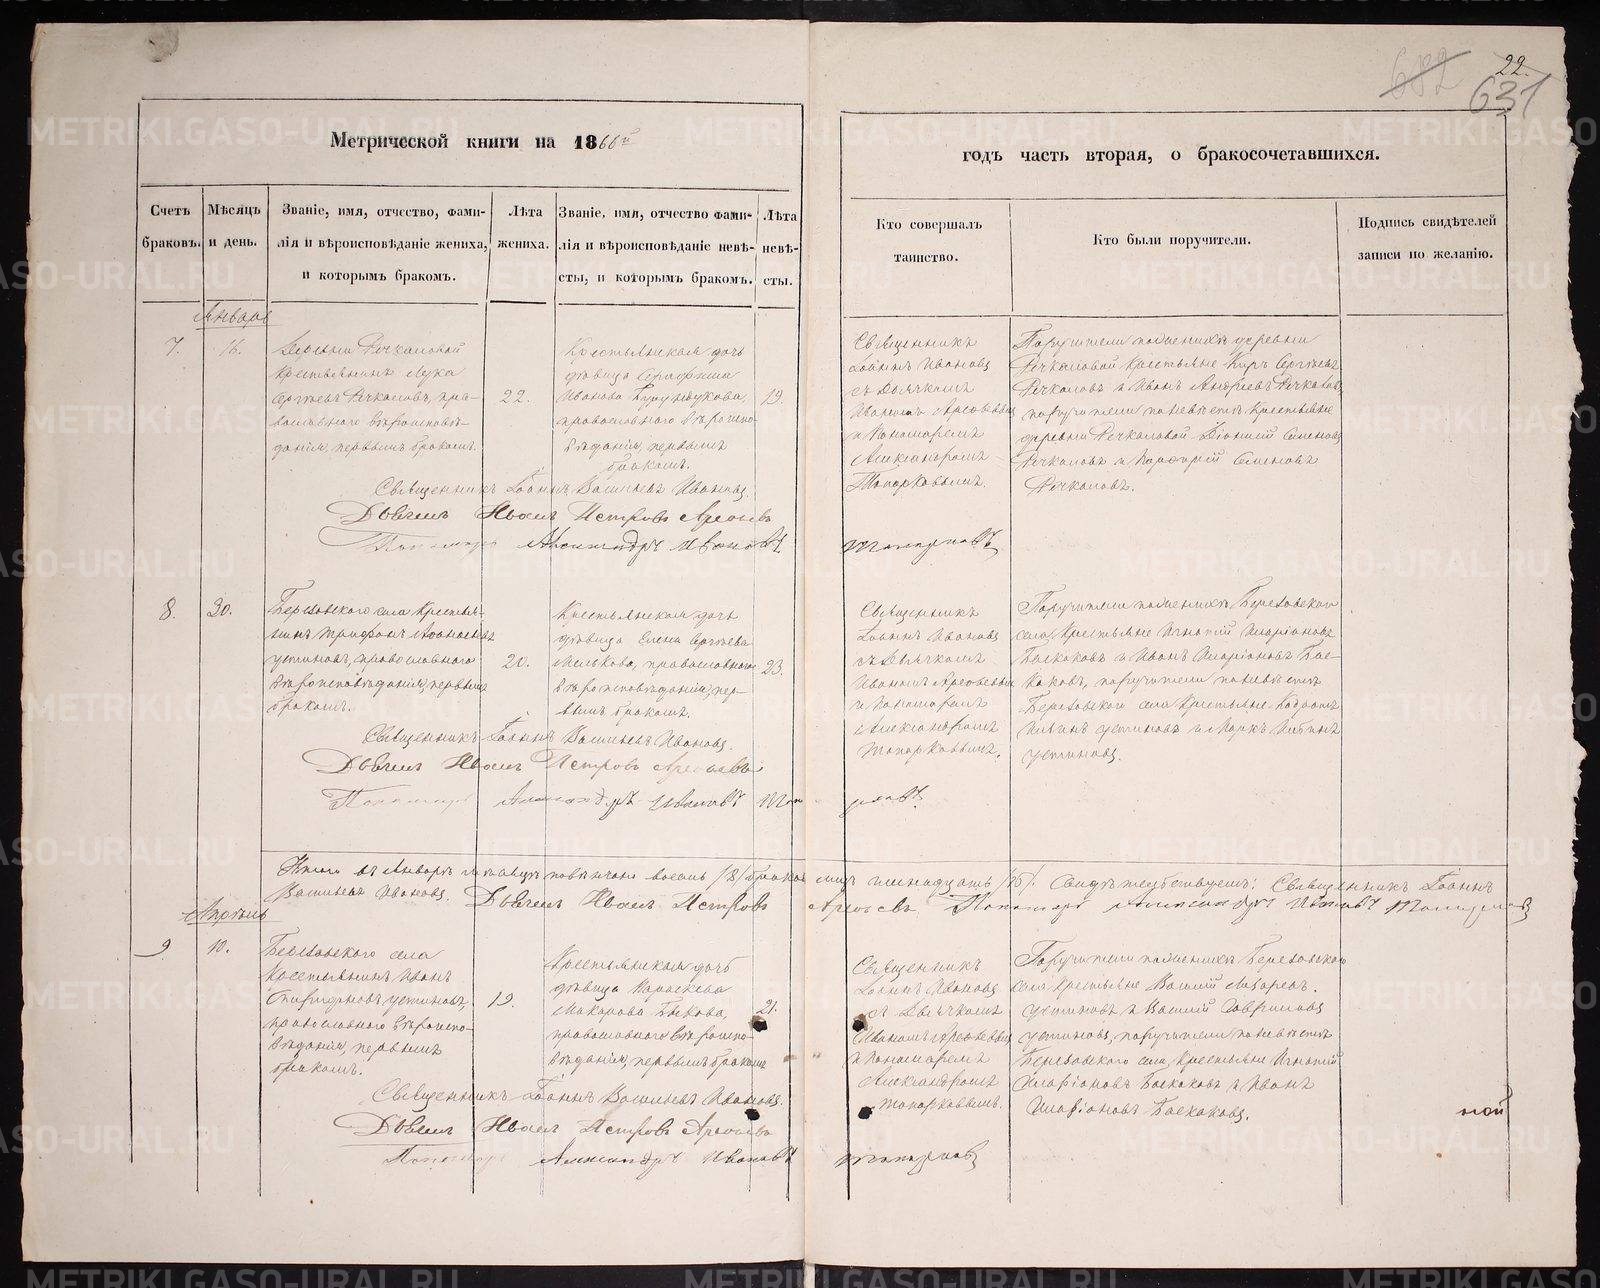 682
22.
631
Метрической книги на 1866й
годъ часть вторая, о бракосочетавшихся.
Счетъ
браковъ.
Мѣсяцъ
и день.
Званіе, имя, отчество, фами-
лія и вѣроисповѣданіе жениха,
и которымъ бракомъ.
Лѣта
жениха.
Званіе, имя, отчество фами-
лія и вѣроисповѣданіе невѣ-
сты, и которымъ бракомъ.
Лѣта
невѣ-
сты.
Кто совершалъ
таинство.
Кто были поручители.
Подпись свидѣтелей
записи по желанію.
Январь
7.
16.
Деревни Речкаловой
Крестьянинъ Лука
Сергѣевъ Речкаловъ, пра-
вославного вѣроисповѣ-
данія, первымъ бракомъ.
22.
Крестьянская дочь
дѣвица Серафима
Иванова
православного вѣроиспо-
вѣданія, первымъ
бракомъ.
19.
Священникъ
Іоаннъ Ивановъ
съ Дьячкомъ
Иваномъ Арефьевым
и Пономаремъ
Александромъ
Топорковымъ.
Поручители по женихѣ деревни
Речкаловой Крестьяне Киръ Сергѣевъ
Речкаловъ и Иванъ Андреевъ Речкаловъ,
поручители по невѣстѣ Крестьяне
деревни Речкаловой Діонисій Семеновъ
Речкаловъ и Порфирій Семеновъ
Речкаловъ.
Священникъ Іоаннъ Васильевъ Ивановъ.
Дьячекъ Иванъ Петровъ Арефьевъ
Пономарь Александръ Ивановъ
Топорковъ
8.
30.
Березовского села Крестья-
нинъ Трифонъ Аѳанасьевъ
Устиновъ, православного
вѣроисповѣданія, первымъ
бракомъ.
20.
Крестьянская дочь
дѣвица Елена Сергѣева
Мелькова, православного
вѣроисповѣданія, пер-
вымъ бракомъ.
23.
Священникъ
Іоаннъ Ивановъ
съ Дьячкомъ
Иваномъ Арефьевым
и Пономаремъ
Александромъ
Топорковымъ.
Поручители по женихѣ Березовского
села Крестьяне Игнатій Иларіоновъ
Баскаковъ и Иванъ Иларіоновъ Бас-
каковъ, поручители по невѣстѣ
Березовского села Крестьяне
Устиновъ и Маркъ
Устиновъ.
Священникъ Іоаннъ Васильевъ Ивановъ.
Дьячекъ Иванъ Петровъ Арефьевъ
Пономарь Александръ Ивановъ Топо
рковъ
Итого въ Январѣ мѣсяцѣ повѣнчано восемь /8/ браковъ, лицъ шестнадцать /16/. Свидѣтельствуемъ: Священникъ Іоаннъ
Васильевъ Ивановъ. Дьячекъ Иванъ Петровъ Арефьевъ Пономарь Александръ Ивановъ Топорковъ
Апрѣль
9
10.
Березовского села
Крестьянинъ Иванъ
Спиридоновъ Устиновъ,
православного вѣроиспо-
вѣданія, первымъ
бракомъ.
19.
Крестьянская дочь
дѣвица Параскева
Макарова Быкова,
православного вѣроиспо-
вѣданія, первымъ бракомъ
21.
Священникъ
Іоаннъ Ивановъ
съ Дьячкомъ
Иваномъ Арефьевым
и Пономаремъ
Александромъ
Топорковымъ.
Поручители по женихѣ Березовского
села Крестьяне Василій Лазарев.
Устиновъ и Василій Гавриловъ
Устиновъ, поручители по невѣстѣ
Березовского села Крестьяне Игнатій
Иларіоновъ Баскаковъ и Иванъ
Иларіоновъ Баскаковъ.
Священникъ Іоаннъ Васильевъ Ивановъ.
Дьячекъ Иванъ Петровъ Арефьевъ
Пономарь Александръ Ивановъ
Топорковъ
ной
METRIKI.GASO-URAL.RU